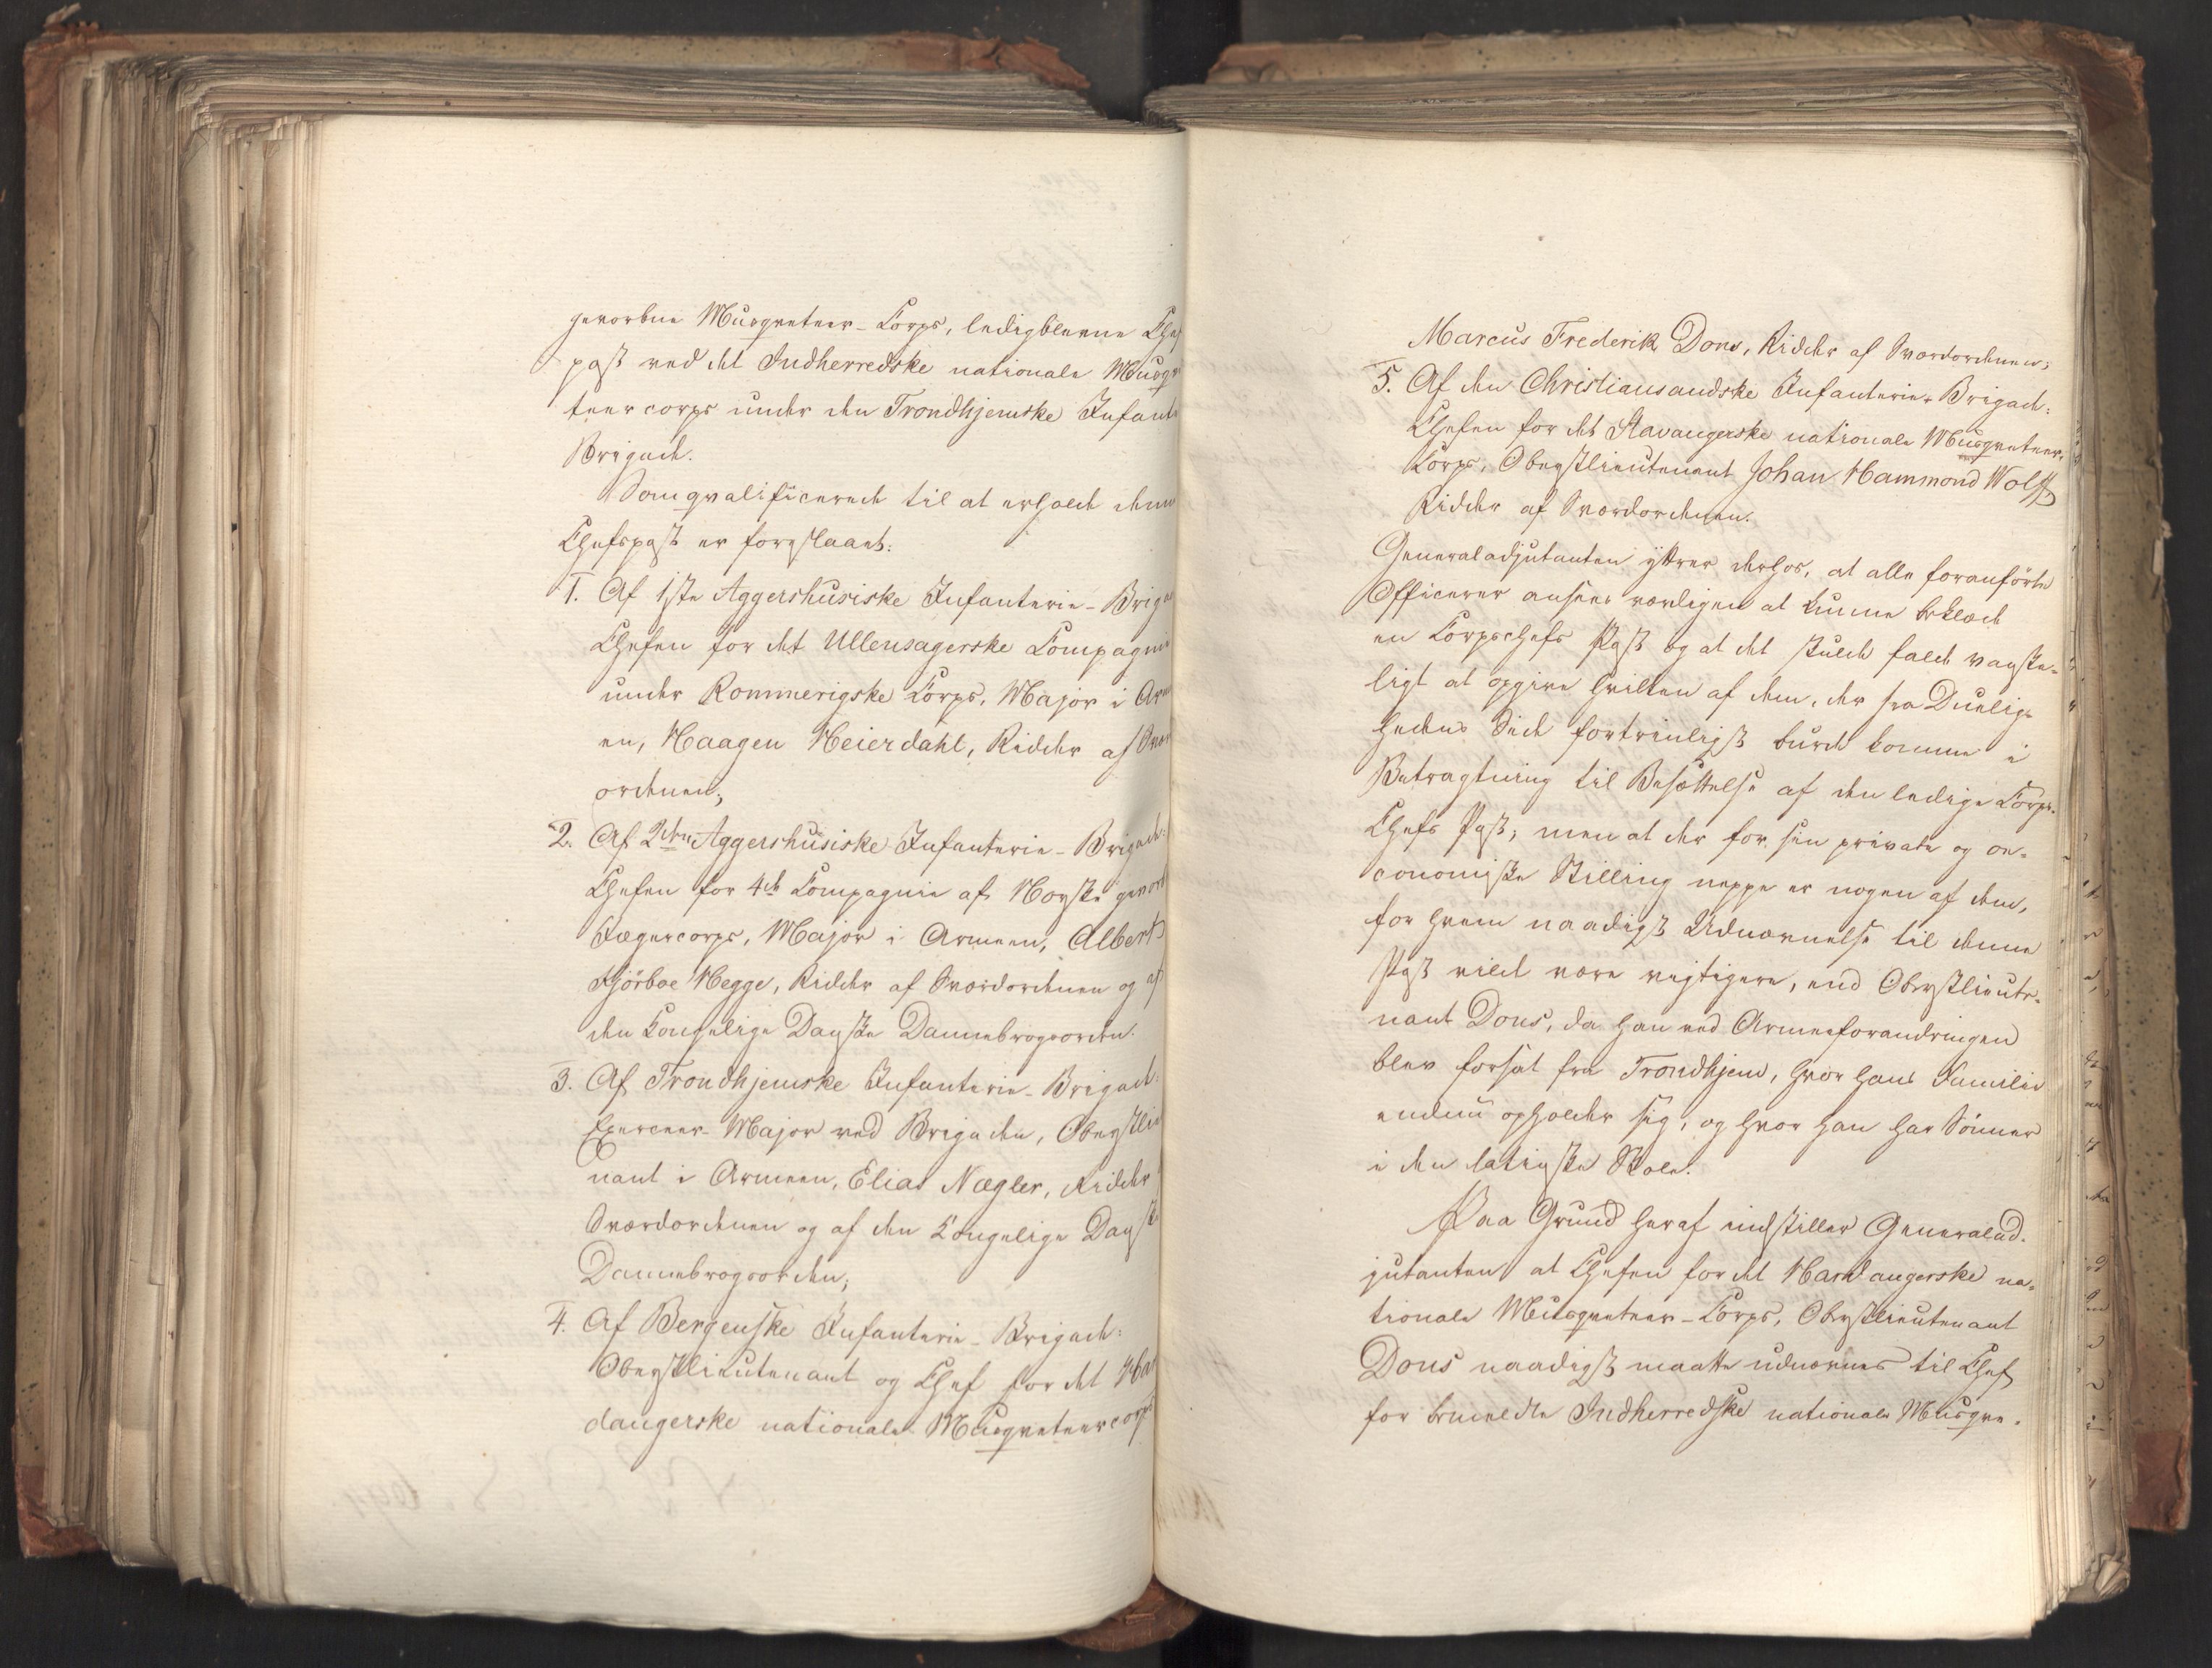 gevorbne Musqveteer-Corps, ledigblevne Chef
post ved det Indherredske nationale Musqve
teercorps under den Trondhjemske Infante
Brigade.
Som qvalificerede til at erholde denne
Chefspost er foreslaaet:
1. Af 1ste Aggershusiske Infanterie-Briga
Chefen for det Ullensagerske Compagnie
under Rommerigske Corps, Major i Arme
en, Haagen Heierdahl, Ridder af Svær
ordenen;
2. Af 2den Aggershusiske Infanterie-Brigade:
Chefen for 4de Compagnie af Norske gevorb
Jægercorps, Major i Armeen, Albert
Hegge, Ridder af Sværdordenen og af
den Kongelige Danske Dannebrogsorden.
3. Af Trondhjemske Infanterie-Brigade:
Exerceer-Major ved Brigaden, Oberstlieu
nant i Armeen, Elias Nægler, Ridder
Sværdordenen og af den Kongelige Danske
Dannebrogsorden;
4. Af Bergenske Infanterie-Brigade:
Oberstlieutenant og Chef for det Har
dangerske nationale Musqveteercorps
Marcus Frederik Dons, Ridder af Sværdordenen;
5. Af den Christiansandske Infanterie-Brigade:
Chefen for det Stavangerske nationale Musqveteer-
Corps, Oberstlieutenant Johan Hammond Wolff
Ridder af Sværdordenen.
Generaladjutanten yttrer derhos, at alle foranførte
Officerer ansees værdigen at kunne beklæde
en Corpschefs Post og at det skulde falde vanske-
ligt at opgive hvilken af dem, der fra Duelig-
hedens Side fortrinligst burde komme i
Betragtning til Besættelse af den ledige Corps-
Chefs Post; men at der for sin private og oe-
conomiske Stilling neppe er nogen af dem,
for hvem naadigst Udnævnelse til denne
Post vilde være vigtigere, end Oberstlieute-
nant Dons, da han ved Armeeforandringen
blev forsat fra Trondhjem, hvor hans Familie
endnu opholder sig, og hvor han har Sønner
i den latinske Skole.
Paa Grund heraf indstiller Generalad-
jutanten at Chefen for det Hardangerske na-
tionale Musqveteer-Corps, Oberstlieutenant
Dons naadigst maatte udnævnes til Chef
for bemeldte Indherredske nationale Musqve-